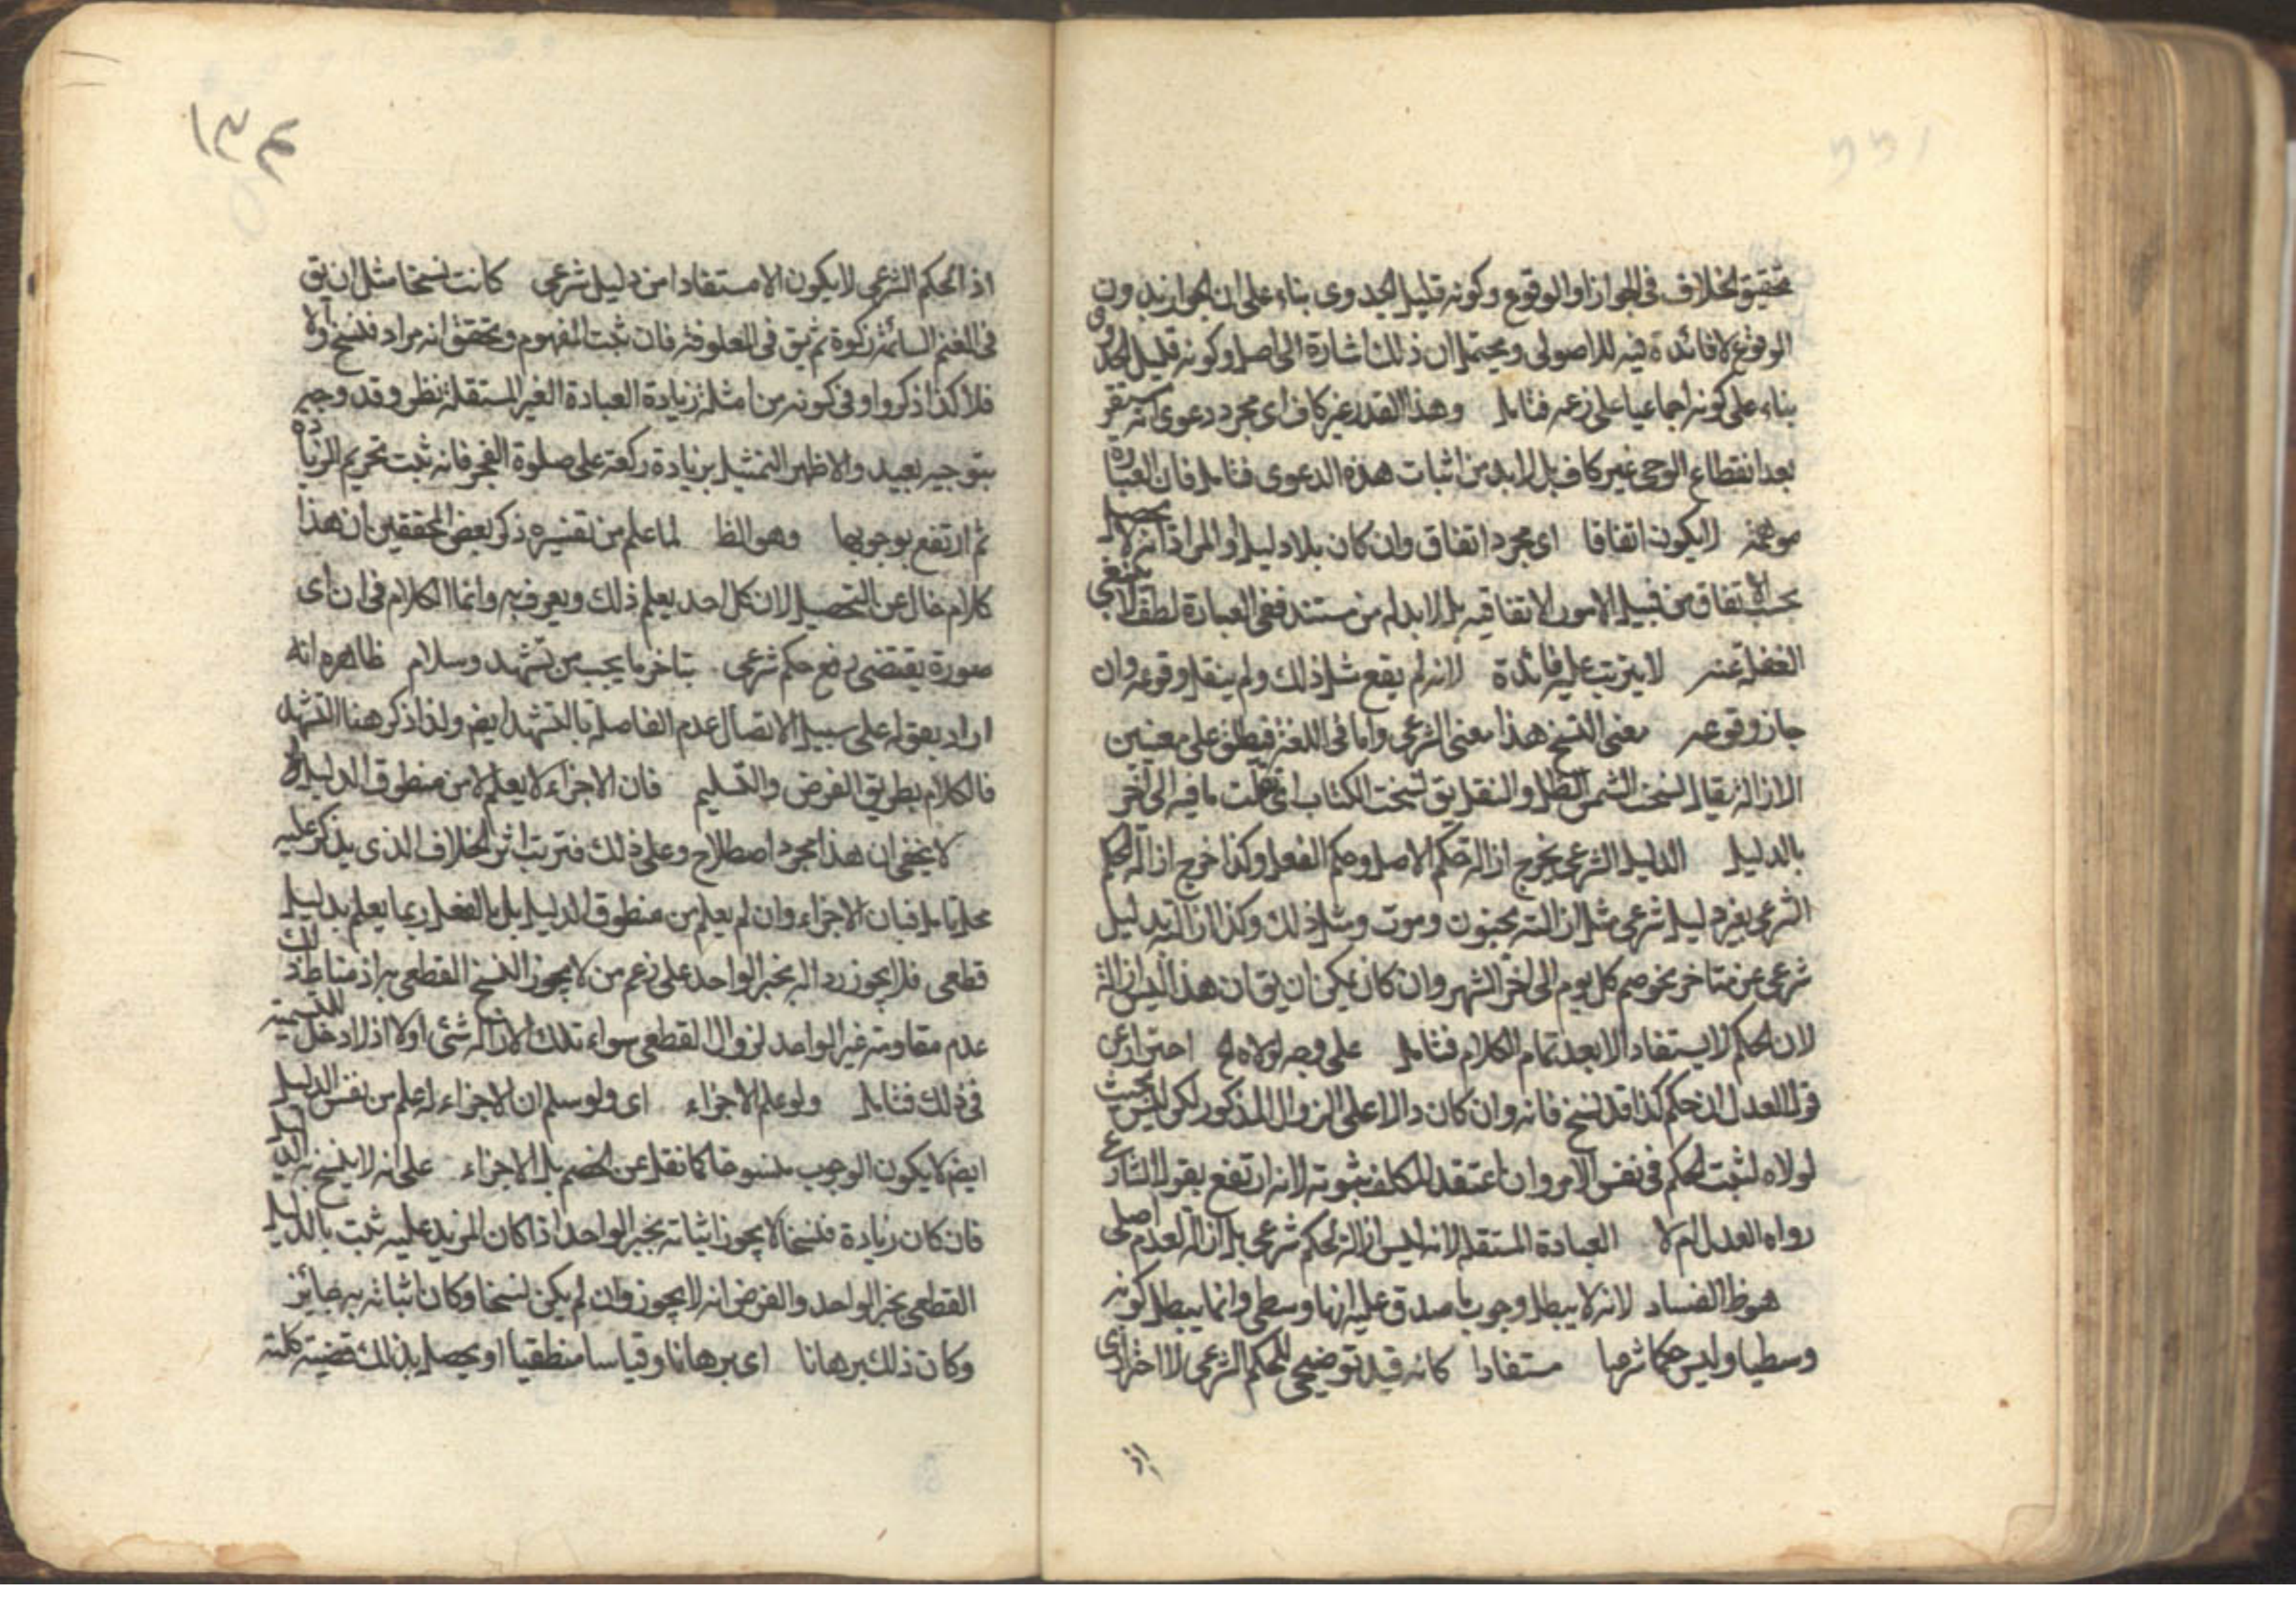 تحقيق الخلاف فى الجواز او الوقوع وكونه قليل الجدوى بناء على ان الجواز بدون
الوقوع لا فائدة فيه للاصولى ويحتمل ان ذلك اشارة الى اصل وكونه قليل الجدوى
بناء على كونه اجماعيا على زعمه فتامل وهذا القدر غير كاف اى مجرد دعوى انه مستقر
بعد انقطاع الوحى غير كاف بل لا بد من اثبات هذه الدعوى فتامل فان العبارة
موهمة لا يكون اتفاقا اى مجرد اتفاق وان كان بلا دليل او المراد انه لا يحصل
بحسب الاتفاق من قبيل الامور الاتفاقيه بل لا بد له من مستند ففى العبارة لطف لا ينبغى
الغفلة عنه لا يترتب عليه فائدة لانه لم يقع مثل ذلك ولم ينقل وقوعه وان
جاز وقوعه معنى النسخ هذا معنى الشرعى واما فى اللغة فيطلق على معنيين
الازالة يقال نسخت الشمس الظل والنقل يق نسخت الكتاب اى نقلت ما فيه الى اخر
بالدليل الدليل الشرعى يخرج ازالة حكم الاصل وحكم الفعل وكذا خرج ازالة الحكم
الشرعى بغير دليل شرعى مثل ازالته بجنون وموت ومثل ذلك وكذا ازالته بدليل
شرعى غير متاخر نحو صم كل يوم الى اخر الشهر وان كان يمكن ان يق ان هذا ليس ازالة
لان الحكم لا يستفاد الا بعد تمام الكلام فتامل على وجه لولاه الخ احتراز عن
قول العدل ان حكم كذا قد نسخ فانه وان كان دالا على الزوال المذكور لكن ليس بحيث
لولاه لثبت الحكم فى نفس الامر وان اعتقد المكلف ثبوته لانه ارتفع بقول الشارع
رواه العدل ام لا العبادة المستقلة لانه ليس ازالة لحكم شرعى بل ازالة لعدم اصلى
هو ظ الفساد لانه لا يبطل وجوب ما صدق عليه انها وسطى وانما يبطل كونه
وسطيا وليس حكما شرعيا مستفادا كانه قيد توضيحى للحكم الشرعى لا احترازى
اذ
١٣٤
اذ الحكم الشرعى لا يكون الا مستفادا من دليل شرعى كانت نسخا مثل ان يق
فى الغنم السائمة زكوة ثم يق فى المعلوفة فان ثبت المفهوم وتحقق انه مراد فنسخ والا
فلا كذا ذكروا وفى كونه من امثلة زيادة العبادة الغير المستقلة نظر وقد وجه
بتوجيه بعيد والاظهر التمثيل بزيادة ركعة على صلوة الفجر فانه ثبت تحريم الزيادة
ثم ارتفع بوجوبها وهو الظ لما علم من تفسيره ذكر بعض المحققين ان هذا
كلام خال عن التحصيل لان كل احد يعلم ذلك ويعرف به وانما الكلام فى ان اى
صورة يقتضى رفع حكم شرعى بتاخر ما يجب من تشهد وسلام ظاهره انه
اراد بقوله على سبيل الاتصال عدم الفاصلة بالتشهد ايض ولذا ذكر هنا التشهد
فالكلام بطريق الفرض والتسليم فان الاجزاء لا يعلم لا من منطوق الدليل
لا يخفى ان هذا مجرد اصطلاح وعلى ذلك فترتب اثر الخلاف الذى يذكر عليه
محل تامل فبان الاجزاء وان لم يعلم من منطوق الدليل بل بالفعل ربما يعلم بدليل
قطعى فلا يجوز رد اله بخبر الواحد على زعم من لا يجوز النسخ القطعى به اذ مناط ذلك
عدم مقاومته غير الواحد لزوال القطعى سواء تلك الازالة شئ اولا اذ لا دخل للتسمية
فى ذلك فتامل ولو علم الاجزاء اى ولو سلم ان الاجزاء له علم من نفس الدليل
ايض لا يكون الوجوب منسوخا كما نقل عن الخصم بل الاجزاء على انه لا ينسخ به الدليل
فان كان زيادة فنسخا لا يجوز اثباته بخبر الواحد اذا كان المزيد عليه ثبت بالدليل
القطعى بخبر الواحد والفرض انه لا يجوز وان لم يكن نسخا وكان اثباته به جايز
وكان ذلك برهانا اى برهانا وقياسا منطقيا او يحصل بذلك قضية كلية